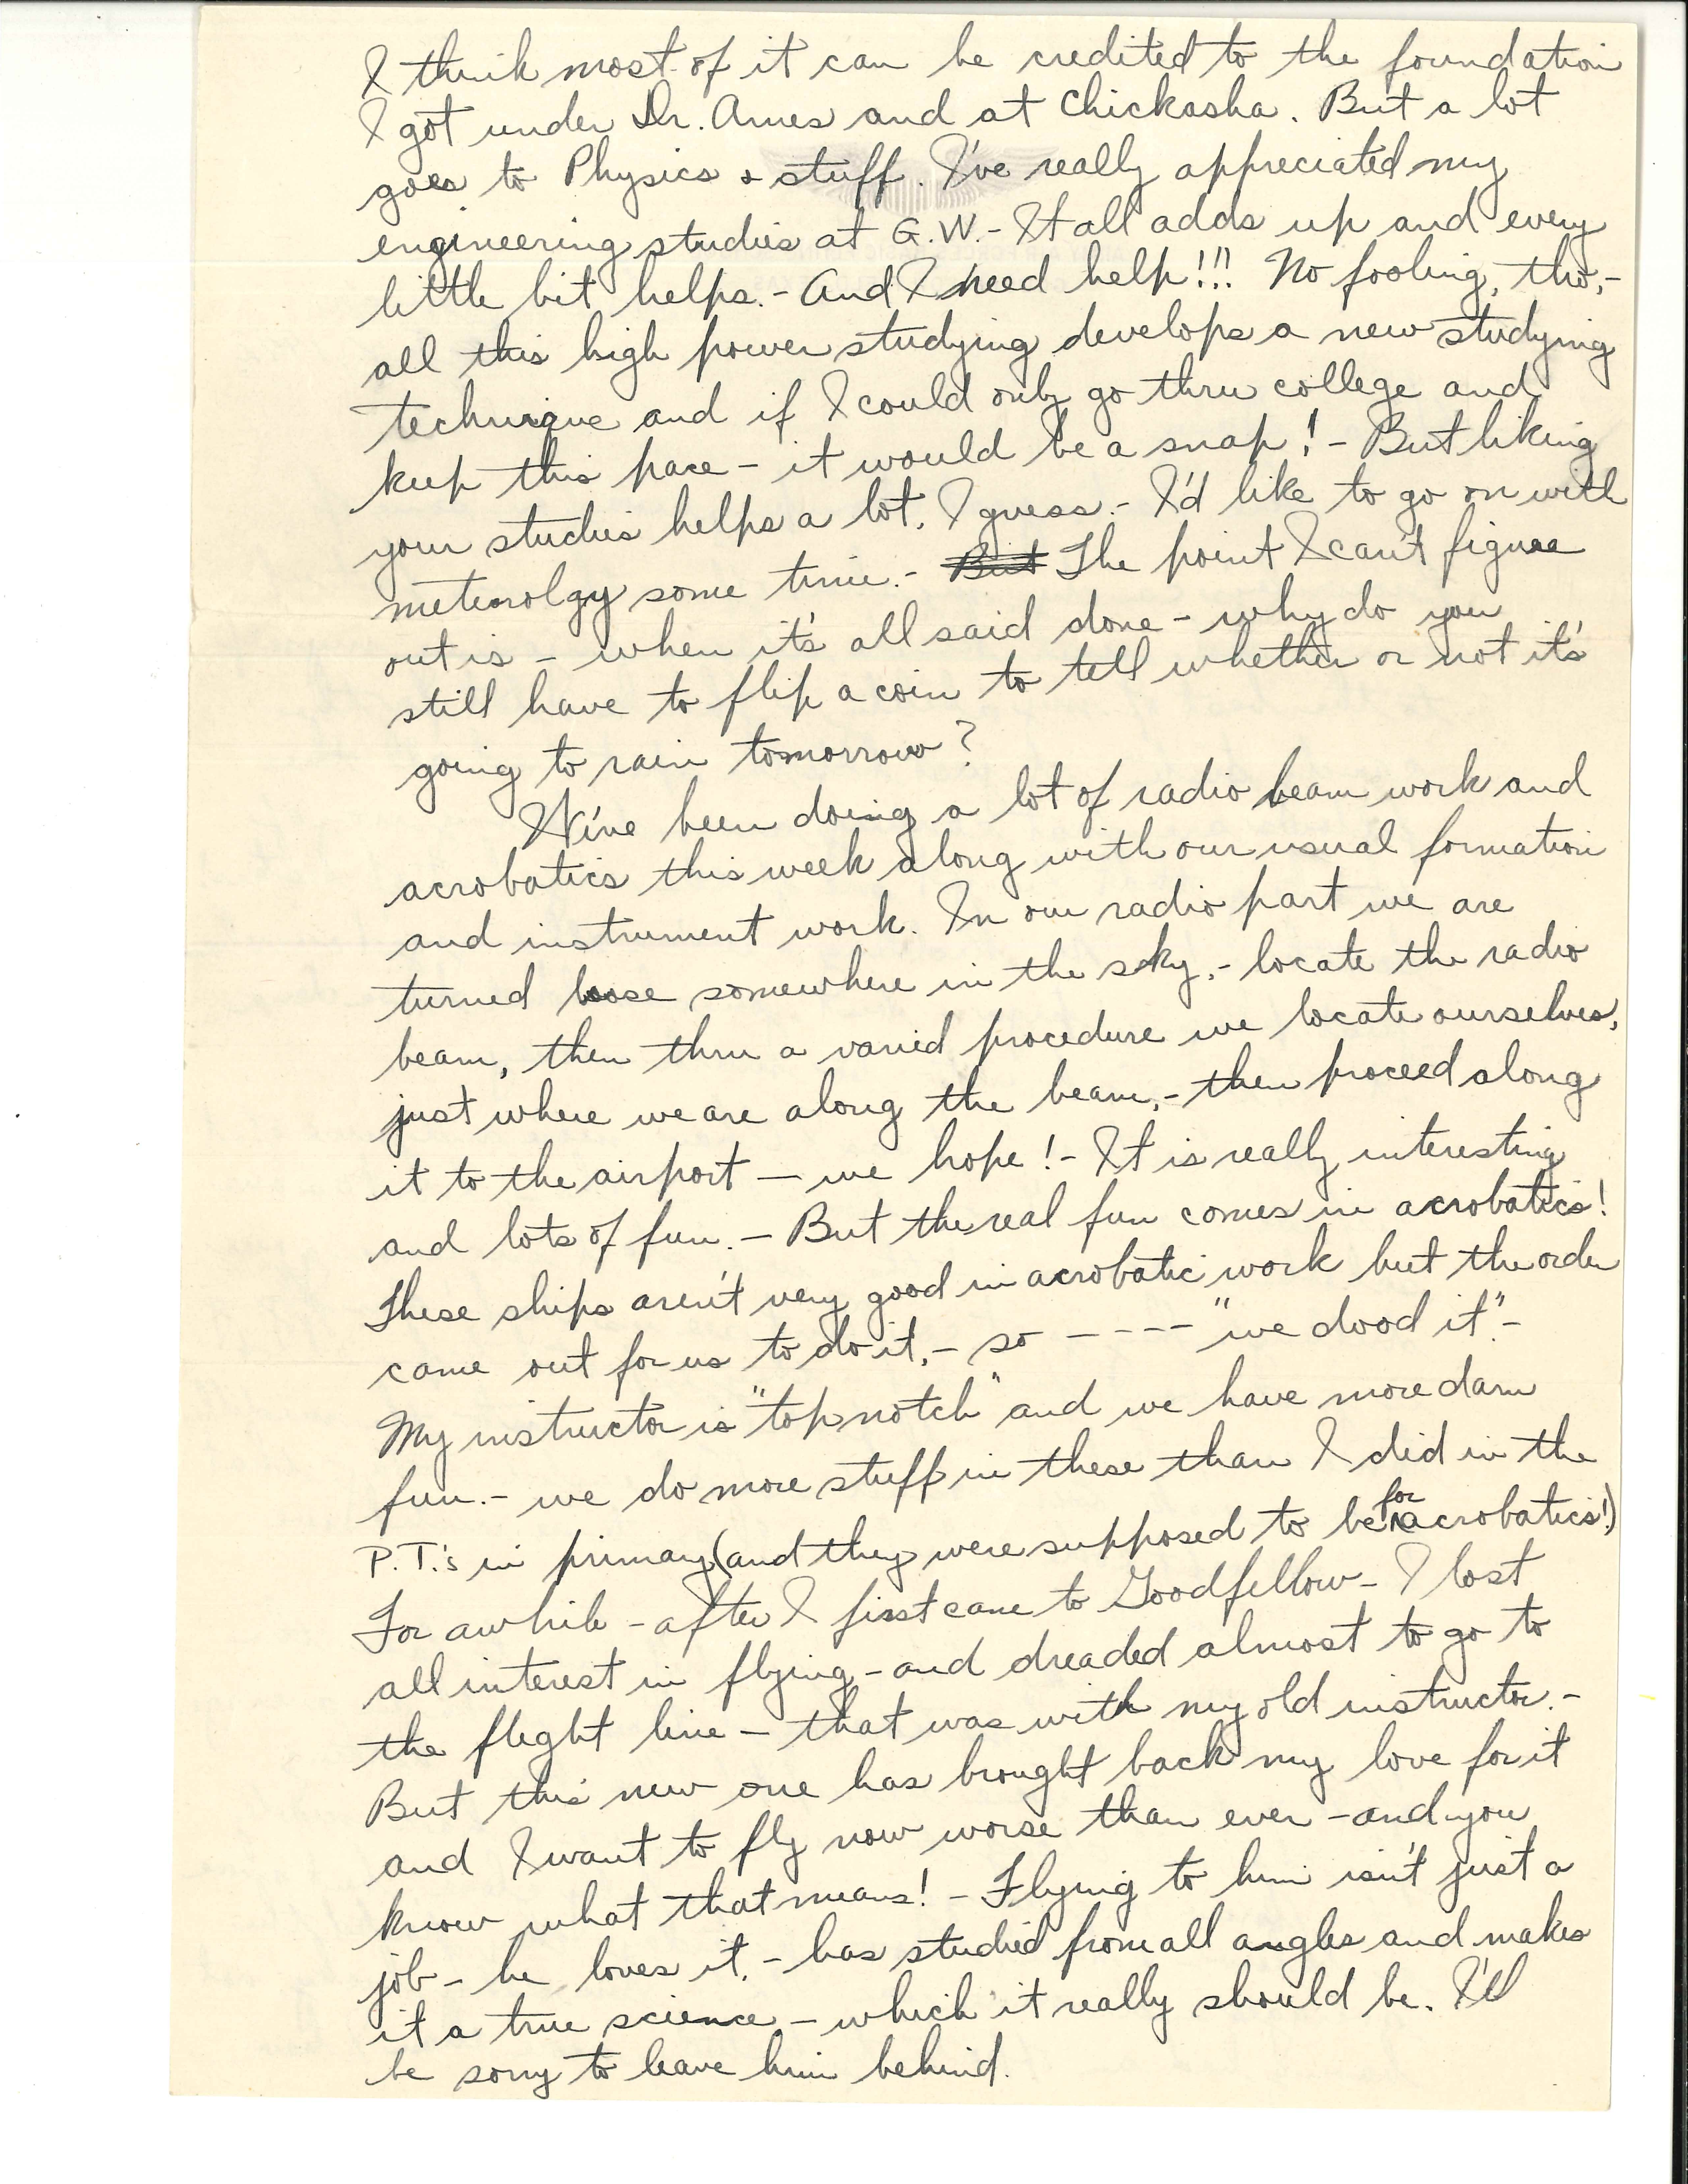 I think most of it can be credited to the foundation
I got under Dr. Ames and at Chickasha. But a lot
goes to Physics & stuff. I've really appreciated my
engineering studies at G.W. - It all adds up and every
little bit helps. - And I need help!!! No fooling, tho, -
all this high power studying develops a new studying
technique and if I could only go thru college and
keep this pace - it would be a snap! - But liking
your studies helps a lot, I guess. - I'd like to go on with
meteorolgy some time. - But The point I can't figure
out is - when it's all said done - why do you
still have to flip a coin to tell whether or not it's
going to rain tomorrow?
We've been doing a lot of radio beam work and
acrobatics this week along with our usual formation
and instrument work. In our radio part we are
turned loose somewhere in the sky, - locate the radio
beam, then thru a varied procedure we locate ourselves,
just where we are along the beam, - then proceed along
it to the airport — we hope! - It is really interesting
and lots of fun. - But the real fun comes in acrobatics!
These ships aren't very good in acrobatic work but the order
came out for us to do it, - so - - - - "we dood it". -
My instructor is "top notch" and we have more darn
fun. - we do more stuff in these than I did in the
P.T.'s in primary (and they were supposed to be for acrobatics!)
For awhile - after I first came to Goodfellow - I lost
all interest in flying - and dreaded almost to go to
the flight line - that was with my old instructor. -
But this new one has brought back my love for it
and I want to fly now worse than ever - and you
know what that means! - Flying to him isn't just a
job - he loves it, - has studied from all angles and makes
it a true science - which it really should be. I'll
be sorry to leave him behind.